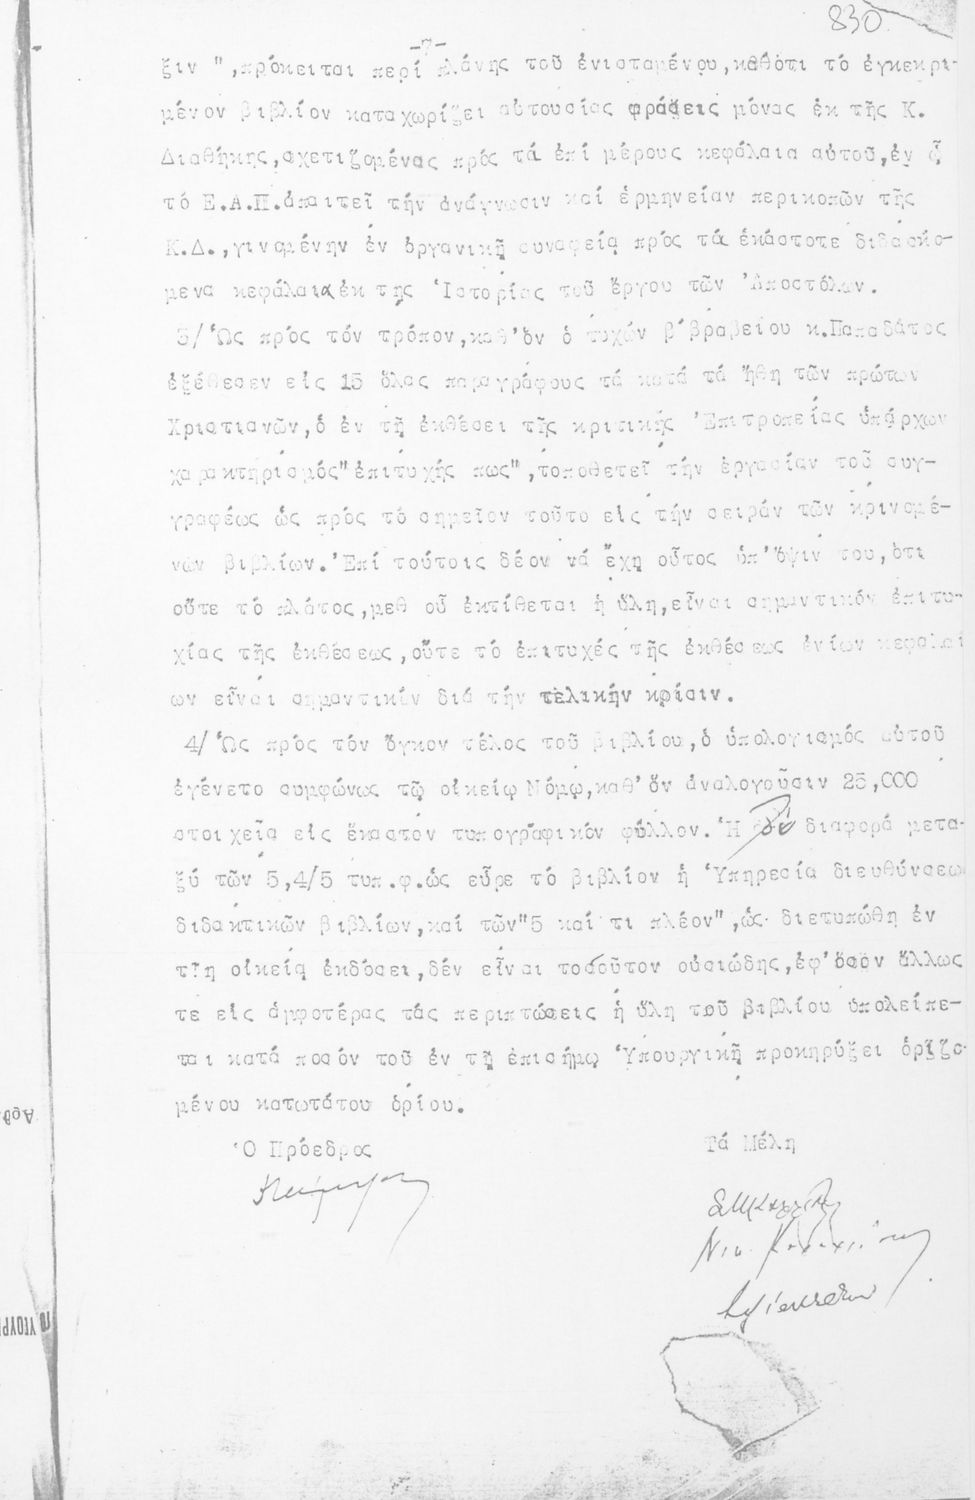 830
-7-
ξιν ",πρόκειται περί πλάνης τοῦ ἐνισταμένου,καθότι τό ἐγκεκρι-
μένον βιβλίον καταχωρίζει αὐτουσίας φράσεις μόνας ἐκ τῆς Κ.
Διαθήκης,σχετιζομένας πρός τά ἐπί μέρους κεφάλαια αὐτοῦ,ἐν ᾧ
τό Ε.Α.Π.ἀπαιτεῖ τήν ἀνάγνωσιν καί ἑρμηνείαν περικοπῶν τῆς
Κ.Δ.,γινομένην ἐν ὀργανικῇ συναφείᾳ πρός τά ἑκάστοτε διδασκό-
μενα κεφάλαια ἐκ τῆς Ἱστορίας τοῦ ἔργου τῶν Ἀποστόλων.
3/ Ὡς πρός τόν τρόπον,καθ' ὅν ὁ τυχών β' βραβείου κ.Παπαδάτος
ἐξέθεσεν εἰς 15 ὅλας παραγράφους τά κατά τά ἤθη τῶν πρώτων
Χριστιανῶν,ὁ ἐν τῇ ἐκθέσει τῆς κριτικῆς Ἐπιτροπείας ὑπάρχων
χαρακτηρισμός"ἐπιτυχής πως",τοποθετεῖ τήν ἐργασίαν τοῦ συγ-
γραφέως ὡς πρός τό σημεῖον τοῦτο εἰς τήν σειράν τῶν κρινομέ-
νων βιβλίων.Ἐπί τούτοις δέον νά ἔχῃ οὗτος ὑπ' ὄψιν του,ὅτι
οὔτε τό πλάτος,μεθ οὗ ἐκτίθεται ἡ ὕλη,εἶναι σημαντικόν ἐπιτυ-
χίας τῆς ἐκθέσεως,οὔτε τό ἐπιτυχές τῆς ἐκθέσεως ἐνίων κεφαλαί
ων εἶναι σημαντικόν διά τήν τελικήν κρίσιν.
4/ Ὡς πρός τόν ὄγκον τέλος τοῦ βιβλίου,ὁ ὑπολογισμός αὐτοῦ
ἐγένετο συμφώνως τῷ οἰκείῳ Νόμῳ,καθ' ὅν ἀναλογοῦσιν 25,000
στοιχεῖα εἰς ἕκαστον τυπογραφικόν φύλλον. Ἡ δέ διαφορά μετα-
ξύ τῶν 5,4/5 τυπ.φ.ὡς εὗρε τό βιβλίον ἡ Ὑπηρεσία διευθύνσεως
διδακτικῶν βιβλίων,καί τῶν"5 καί τι πλέον",ὡς διετυπώθη ἐν
τῇ οἰκείᾳ ἐκδόσει,δέν εἶναι τοσοῦτον οὐσιώδης,ἐφ' ὅσον ἄλλως
τε εἰς ἀμφοτέρας τάς περιπτώσεις ἡ ὕλη τοῦ βιβλίου ὑπολείπε-
ται κατά ποσόν τοῦ ἐν τῇ ἐπισήμῳ Ὑπουργικῇ προκηρύξει ὁριζο-
μένου κατωτάτου ὁρίου.
Ὁ Πρόεδρος
Τά Μέλη
Ἀριθ